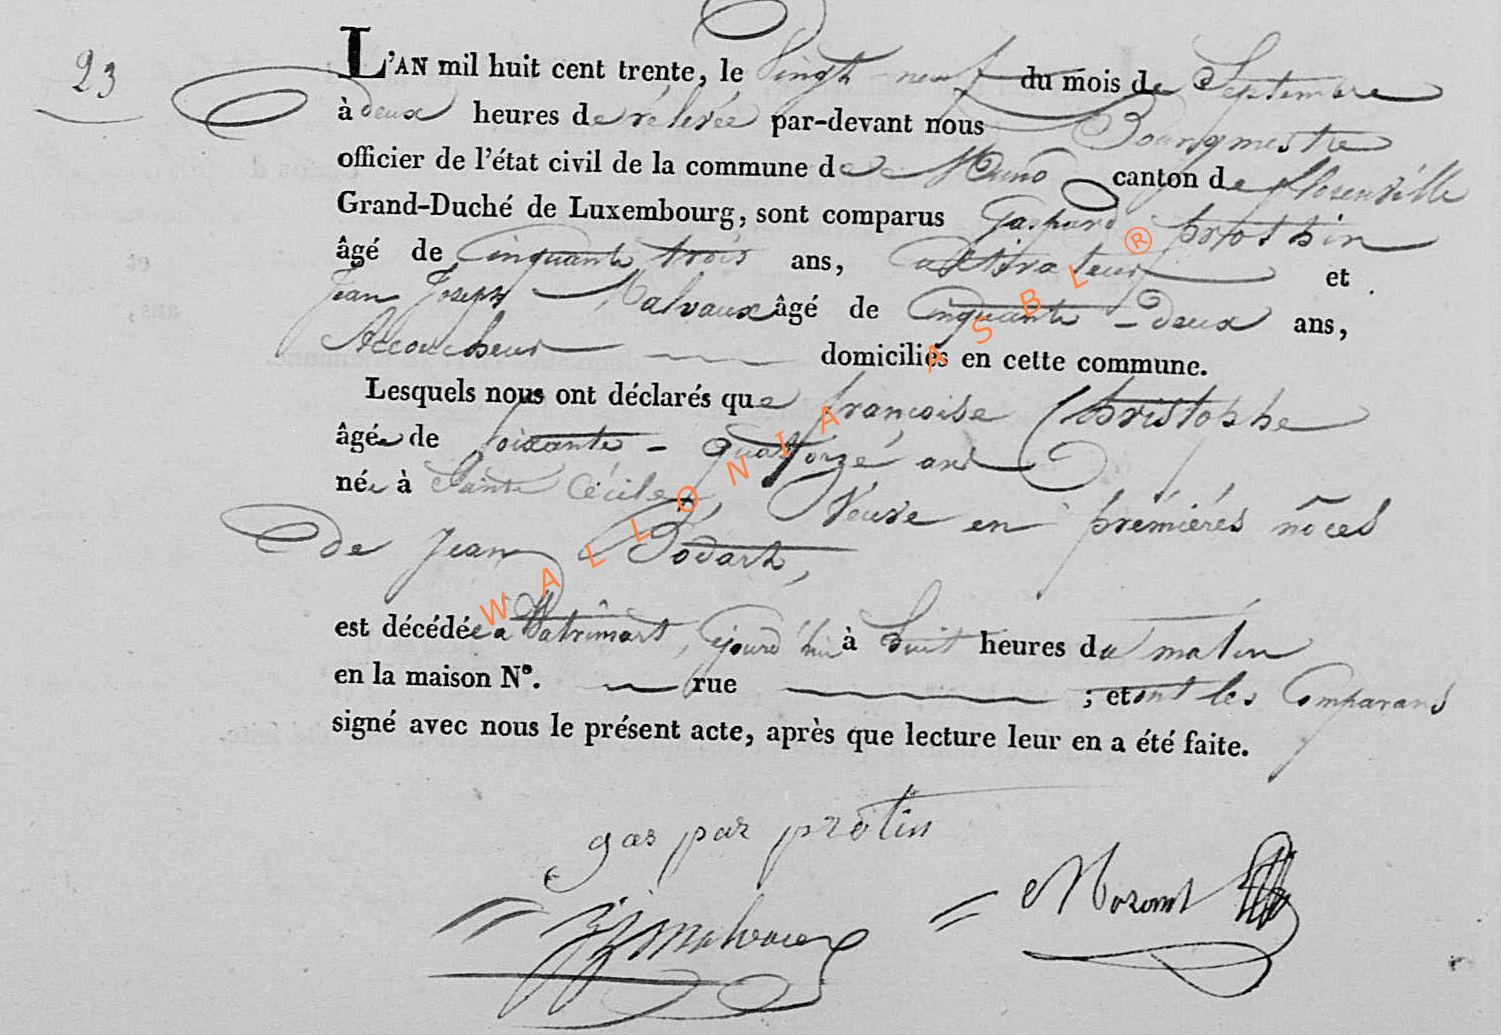 23
L'AN mil huit cent trente, le Vingt-neuf du mois de Septembre
à deux heures de rélevée par-devant nous Bourgmestre
officier de l'état civil de la commune de Muno canton de florenville
Grand-Duché de Luxembourg, sont comparus Gaspard prothin
âgé de Cinquante trois ans, Cultivateur et
Jean Joseph Malvaux âgé de Cinquante-deux ans,
Accoucheur domiciliés en cette commune.
Lesquels nous ont déclarés que françoise Christophe
âgée de soixante-quatorze ans
née à Sainte Cécile, Veuve en prémiérés nôces
de Jean Godart,
est décédée a Watrimart, éjourd'hui à huit heures du matin
en la maison N°. rue ; et ont les Comparans
signé avec nous le présent acte, après que lecture leur en a été faite.
gaspar protin
JJ Malvaux
WALLONIA ASBL®